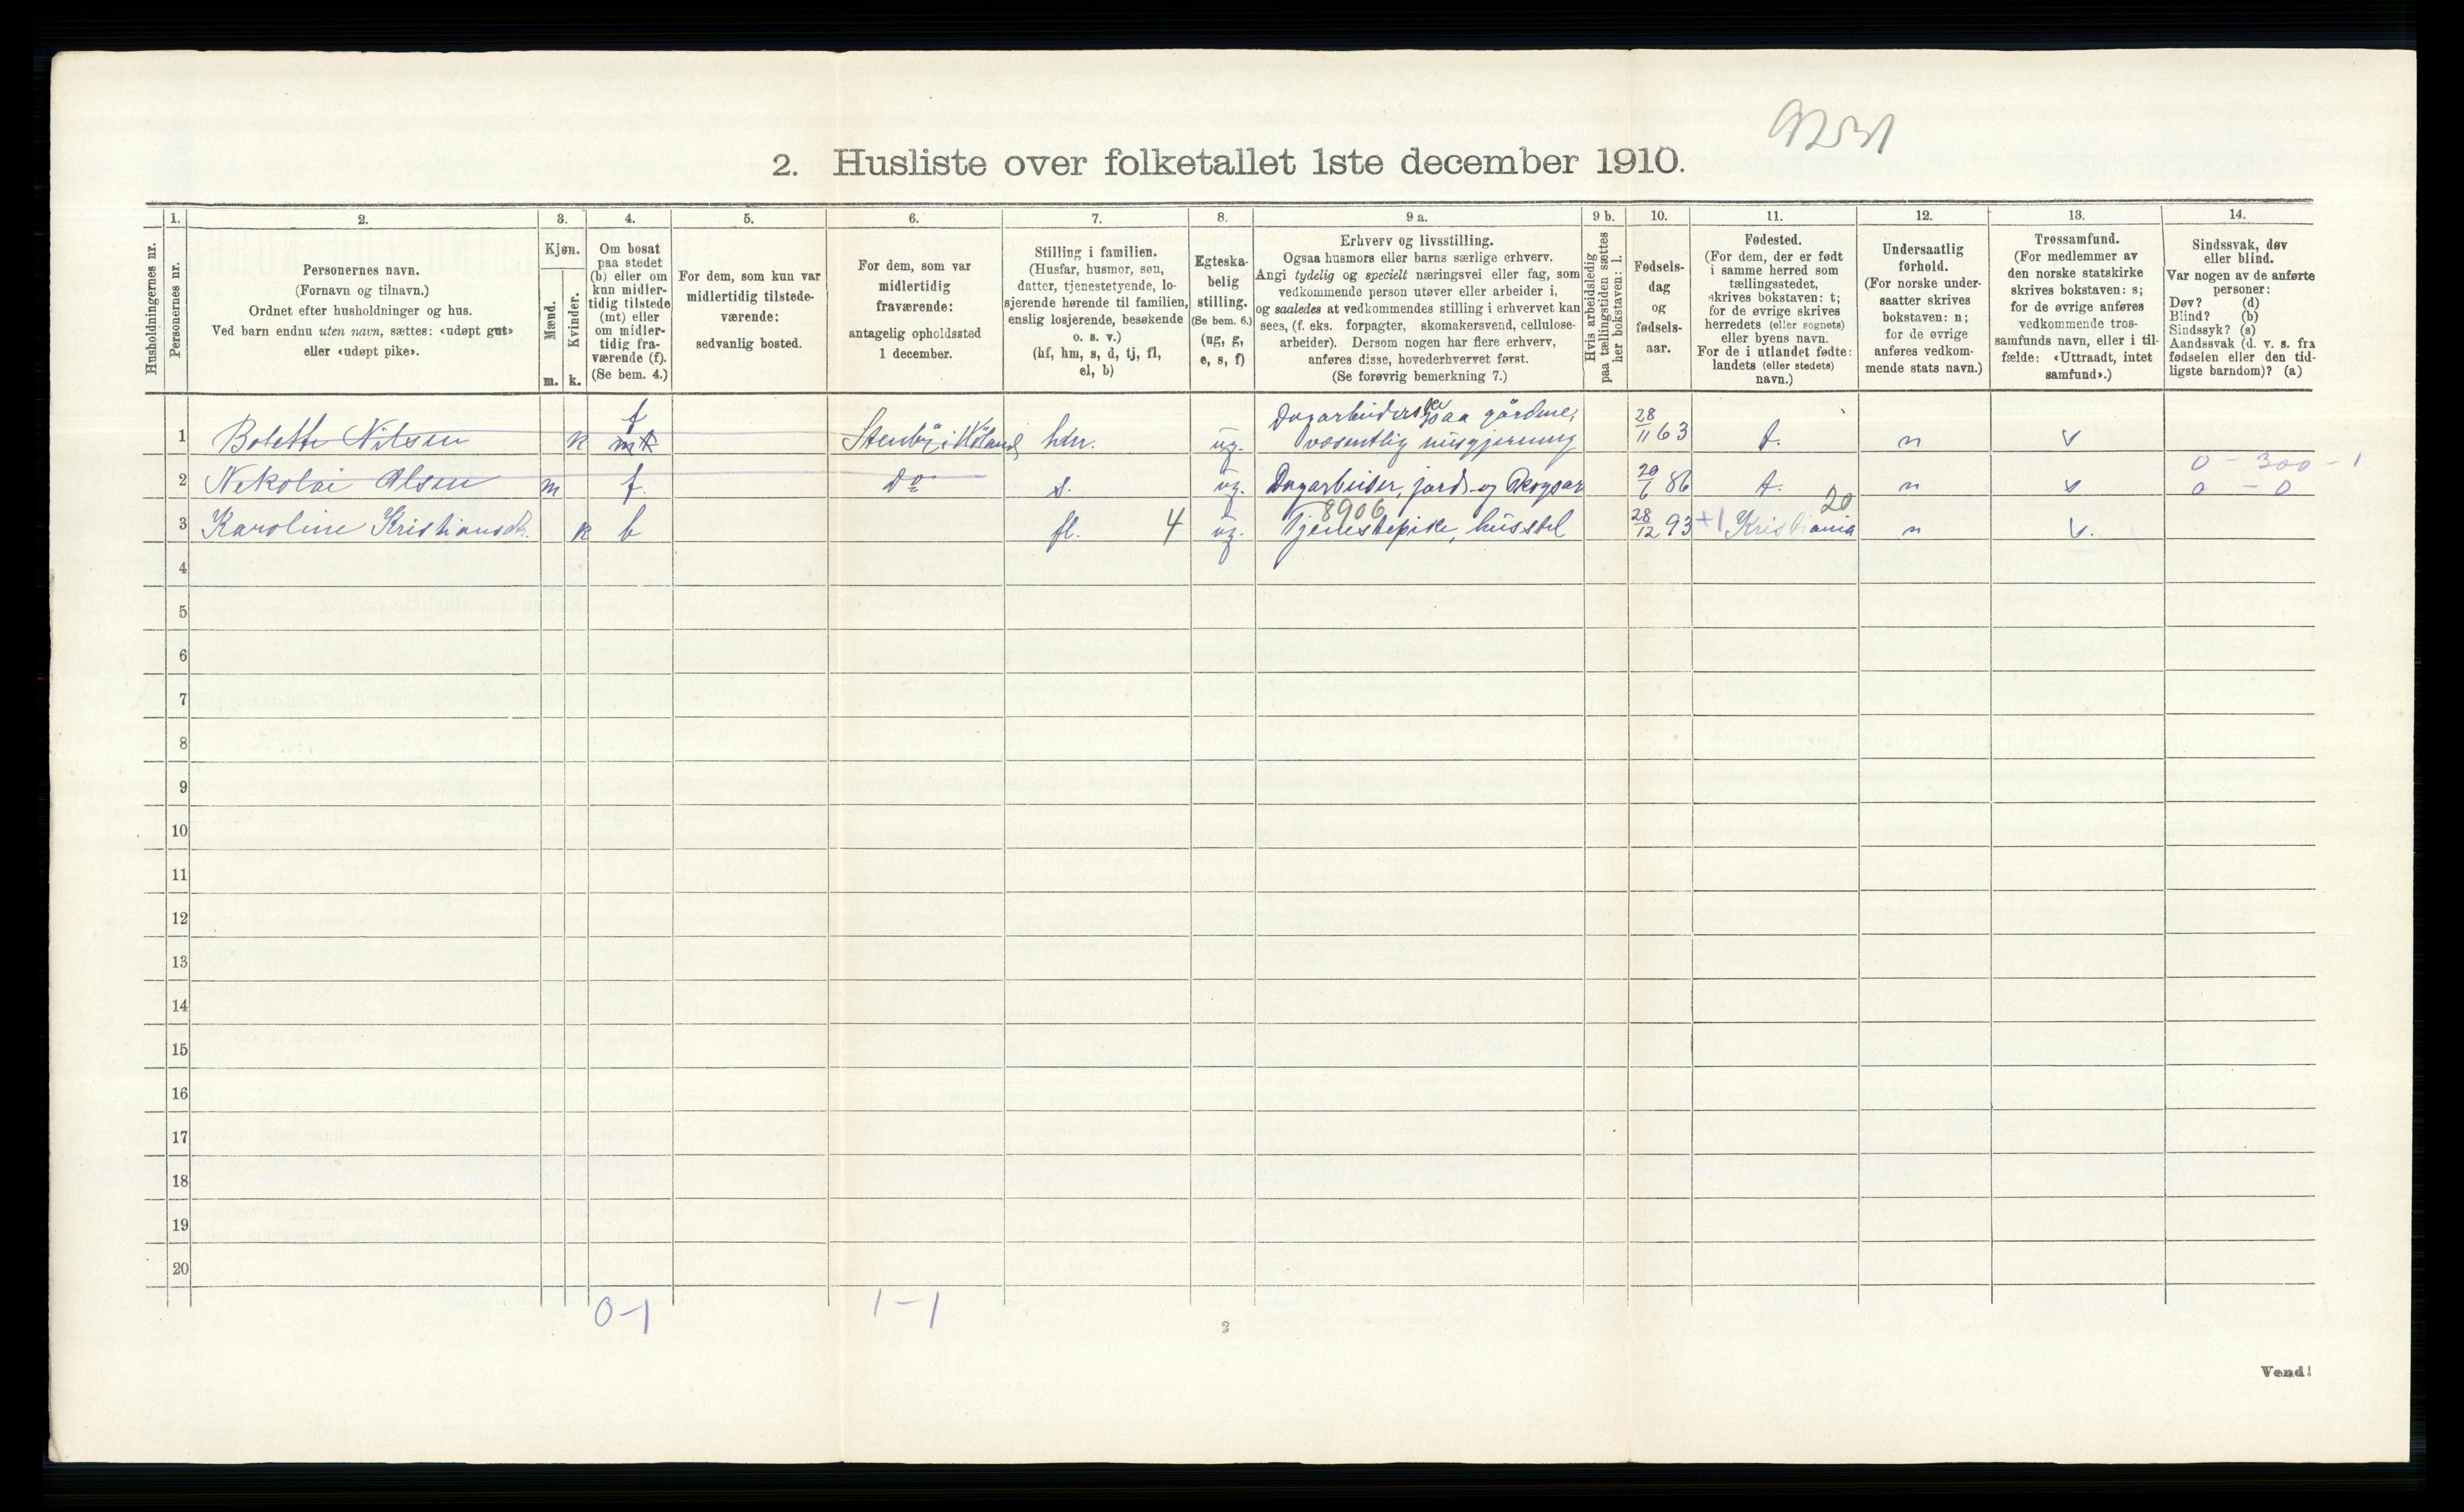 9231
2. Husliste over folketallet 1ste december 1910.
Husholdningernes nr.
1.
Personernes nr.
2.
Personernes navn.
(Fornavn og tilnavn.)
Ordnet efter husholdninger og hus.
Ved barn endnu uten navn, sættes: «udøpt gut»
eller «udøpt pike».
3.
Kjøn.
Mænd.
Kvinder.
m. k.
4.
Om bosat
paa stedet
(b) eller om
kun midler-
tidig tilstede
(mt) eller
om midler-
tidig fra-
værende (f).
(Se bem. 4.)
5.
For dem, som kun var
midlertidig tilstede-
værende:
sedvanlig bosted.
6.
For dem, som var
midlertidig
fraværende:
antagelig opholdssted
1 december.
7.
Stilling i familien.
(Husfar, husmor, søn,
datter, tjenestetyende, lo-
sjerende hørende til familien,
enslig losjerende, besøkende
o. s. v.)
(hf, hm, s, d, tj, fl,
el, b)
8.
Egteska-
belig
stilling.
(Se bem. 6.)
(ug, g,
e, s, f)
9 a.
Erhverv og livsstilling.
Ogsaa husmors eller barns særlige erhverv.
Angi tydelig og specielt næringsvei eller fag, som
vedkommende person utøver eller arbeider i,
og saaledes at vedkommendes stilling i erhvervet kan
sees, (f. eks. forpagter, skomakersvend, cellulose-
arbeider). Dersom nogen har flere erhverv,
anføres disse, hovederhvervet først.
(Se forøvrig bemerkning 7.)
9 b.
Hvis arbeidsledig
paa tællingstiden sættes
her bokstaven: l.
10.
Fødsels-
dag
og
fødsels-
aar.
11.
Fødested.
(For dem, der er født
i samme herred som
tællingsstedet,
skrives bokstaven: t;
for de øvrige skrives
herredets (eller sognets)
eller byens navn.
For de i utlandet fødte:
landets (eller stedets)
navn.)
12.
Undersaatlig
forhold.
(For norske under-
saatter skrives
bokstaven: n;
for de øvrige
anføres vedkom-
mende stats navn.)
13.
Trossamfund.
(For medlemmer av
den norske statskirke
skrives bokstaven: s;
for de øvrige anføres
vedkommende tros-
samfunds navn, eller i til-
fælde: «Uttraadt, intet
samfund».)
14.
Sindssvak, døv
eller blind.
Var nogen av de anførte
personer:
Døv? (d)
Blind? (b)
Sindssyk? (s)
Aandssvak (d. v. s. fra
fødselen eller den tid-
ligste barndom)? (a)
f Dagarbeiderske paa gårdene,
1 Bolette Nilsen k mt Stenby i Höland hm. ug. væsentlig husgjerning 28/11 63 t. n s
0 - 300 - 1
2 Nikolai Olsen m f. do s. ug. Dagarbeider, jord- og skogsar 20/6 86 t. n s 0 - 0
8906 20
3 Karoline Kristiansdt. k b fl. 4 ug. Tjenestepike, husstel 28/12 93 +1 Kristiania n s.
4
5
6
7
8
9
10
11
12
13
14
15
16
17
18
19
20
0-1 1-1
2
Vend!